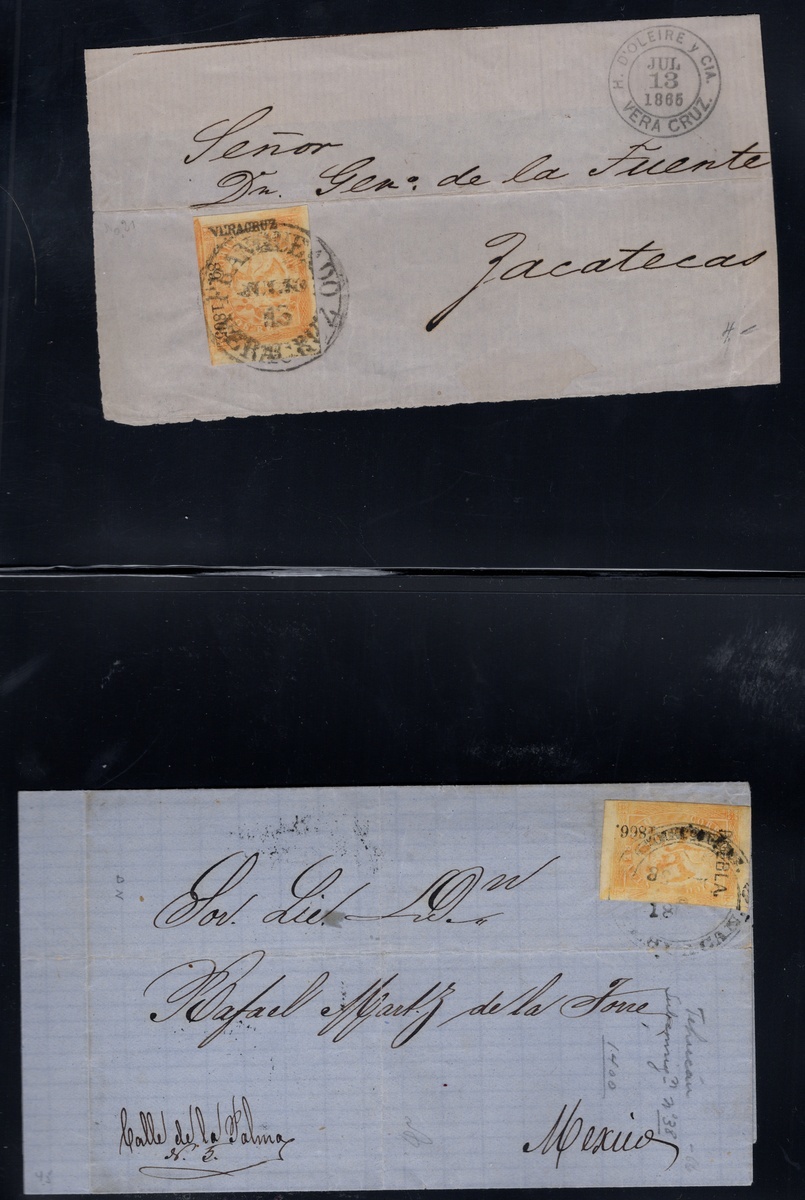 H. D'OLEIRE y CIA.
JUL
13
1865
VERA CRUZ.
Señor
Dn. Geno. de la Fuente
Zacatecas
VERACRUZ
FRANQUEADO
JULIO
13
VERACRUZ
4.-
1866.
PUEBLA.
Sor. Lic. Dn
Rafael Martz de la Torre,
Calle de la Palma
N. 3.
Mexico
Tehuacán
1400